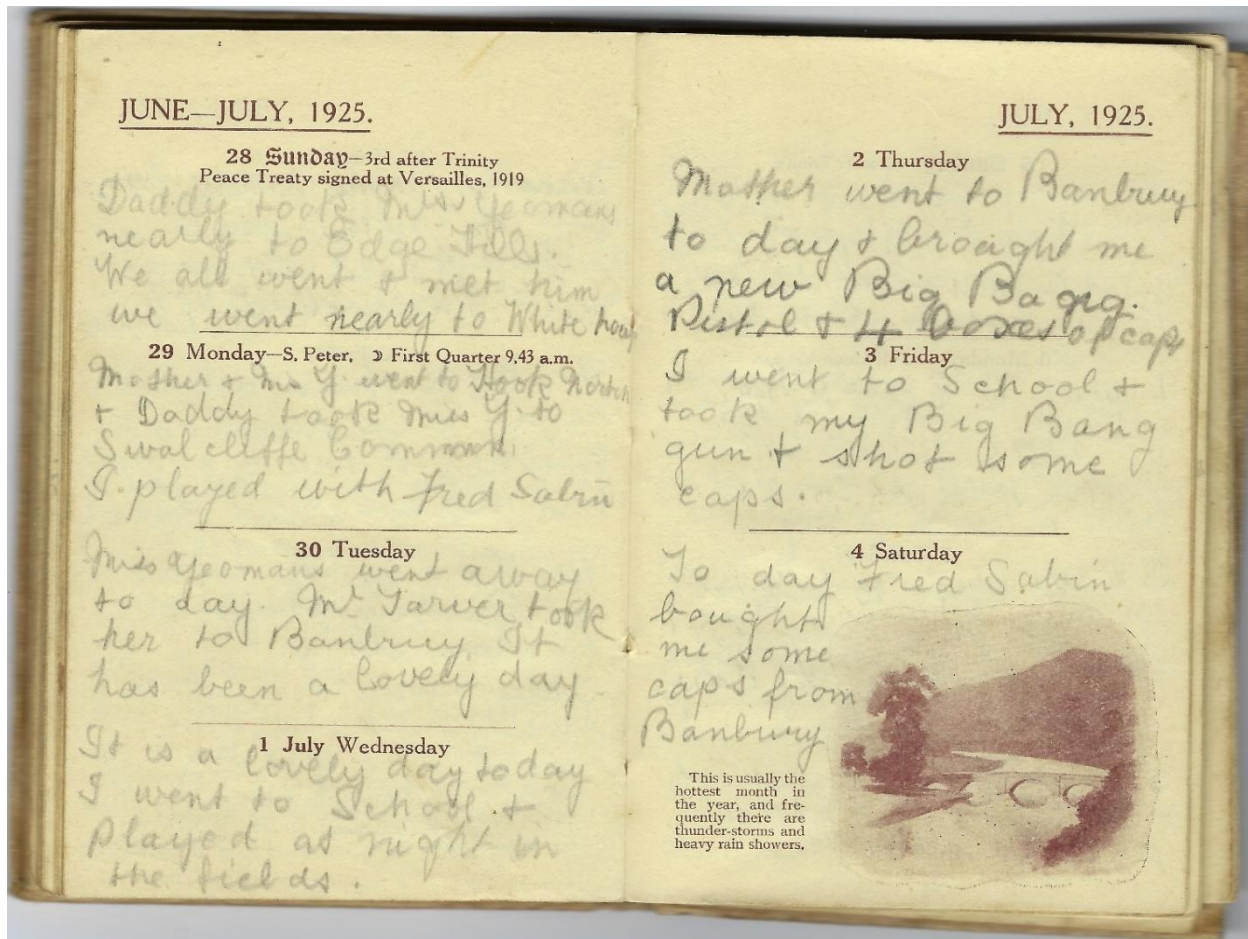 JUNE—JULY, 1925.
28 Sunday—3rd after Trinity
Peace Treaty signed at Versailles, 1919
Daddy took Miss Yeomans
nearly to Edge Hills.
We all went & met him
we went nearly to White hou
29 Monday—S. Peter. ☽ First Quarter 9.43 a.m.
Mother & Mr Y. went to Hook Norton
& Daddy took Miss Y. to
Swalcliffe Common.
I played with Fred Sabin
30 Tuesday
Miss Yeomans went away
to day. Mr Tarver took
her to Banbury. It
has been a lovely day
1 July Wednesday
It is a lovely day today
I went to School &
played at night in
the fields.
JULY, 1925.
2 Thursday
Mother went to Banbury
to day & brought me
a new Big Bang.
Pistol & 4 boxes of caps
3 Friday
I went to School &
took my Big Bang
gun & shot some
caps.
4 Saturday
To day Fred Sabin
bought
me some
caps from
Banbury
This is usually the
hottest month in
the year, and fre-
quently there are
thunder-storms and
heavy rain showers.